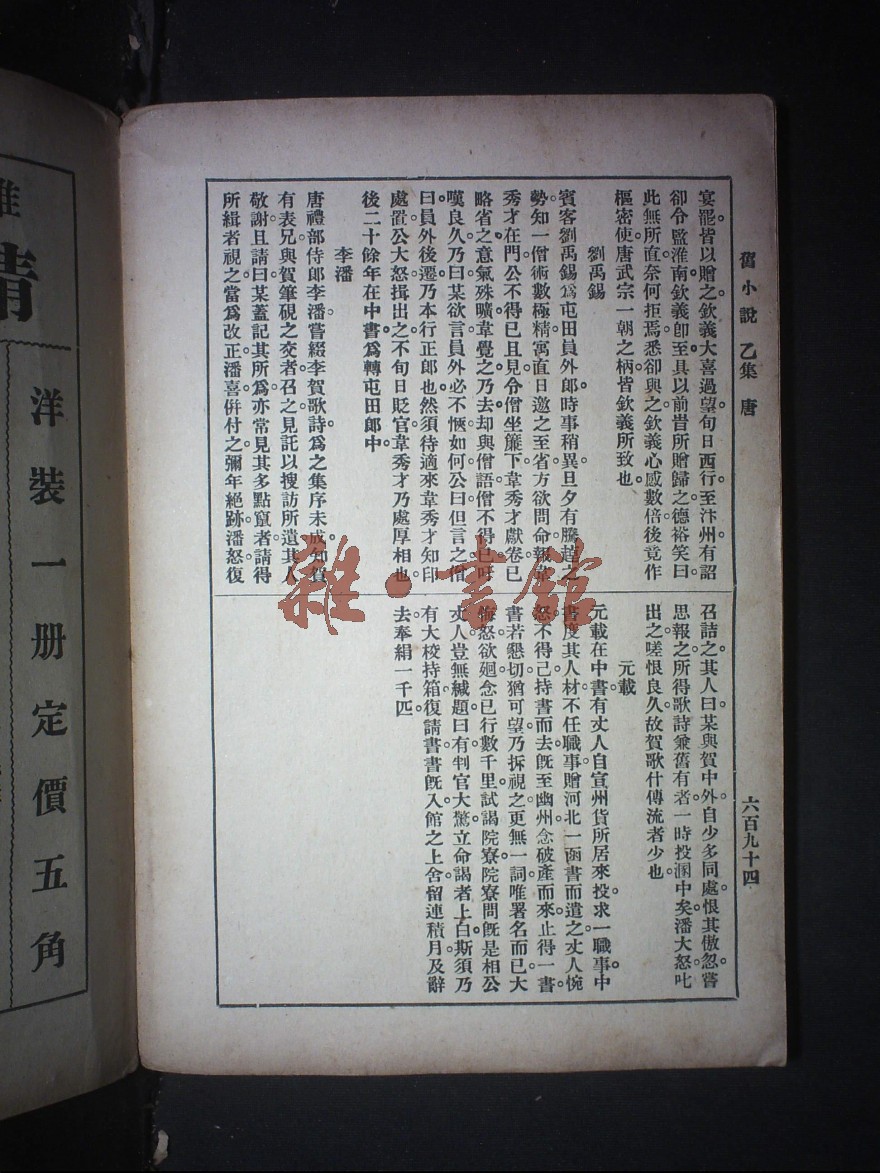 舊小說 乙集 唐
六百九十四
宴罷皆以贈之欽義大喜過望旬日西行至汴州有詔
卻令監淮南欽義卽至具以前昔所贈歸之德裕笑曰
此無所直奈何拒焉悉卻與之欽義心感數倍後竟作
樞密使唐武宗一朝之柄皆欽義所致也
劉禹錫
賓客劉禹錫爲屯田員外郎時事稍異旦夕有騰趠之
勢知一僧術數極精寓直日邀之至省方欲問命報韋
秀才在門公不得已且見令僧坐簾下韋秀才獻卷已
略省之意氣殊曠韋覺之乃去却與僧語僧不得已吁
嘆良久乃曰某欲言員外必不愜如何公曰但言之僧
曰員外後遷乃本行正郎也然須待適來韋秀才知印
處置公大怒揖出之不旬日貶官韋秀才乃處厚相也
後二十餘年在中書爲轉屯田郎中
李潘
唐禮部侍郎李潘嘗綴李賀歌詩爲之集序未成知賀
有表兄與賀筆硯之交者召之見託以搜訪所遺其人
敬謝且請曰某蓋記其所爲亦常見其多點竄者請得
所緝者視之當爲改正潘喜倂付之彌年絕跡潘怒復
召詰之其人曰某與賀中外自少多同處恨其傲忽嘗
思報之所得歌詩兼舊有者一時投溷中矣潘大怒叱
出之嗟恨良久故賀歌什傳流者少也
元載
元載在中書有丈人自宣州貨所居來投求一職事中
書度其人材不任職事贈河北一函書而遣之丈人惋
怒不得已持書而去旣至幽州念破產而來止得一書
書若懇切猶可望乃拆視之更無一詞唯署名而已大
悔怒欲廻念已行數千里試謁院寮院寮問旣是相公
丈人豈無緘題曰有判官大驚立命謁者上白斯須乃
有大校持箱復請書書旣入館之上舍留連積月及辭
去奉絹一千匹
洋裝一册定價五角
雜·書館